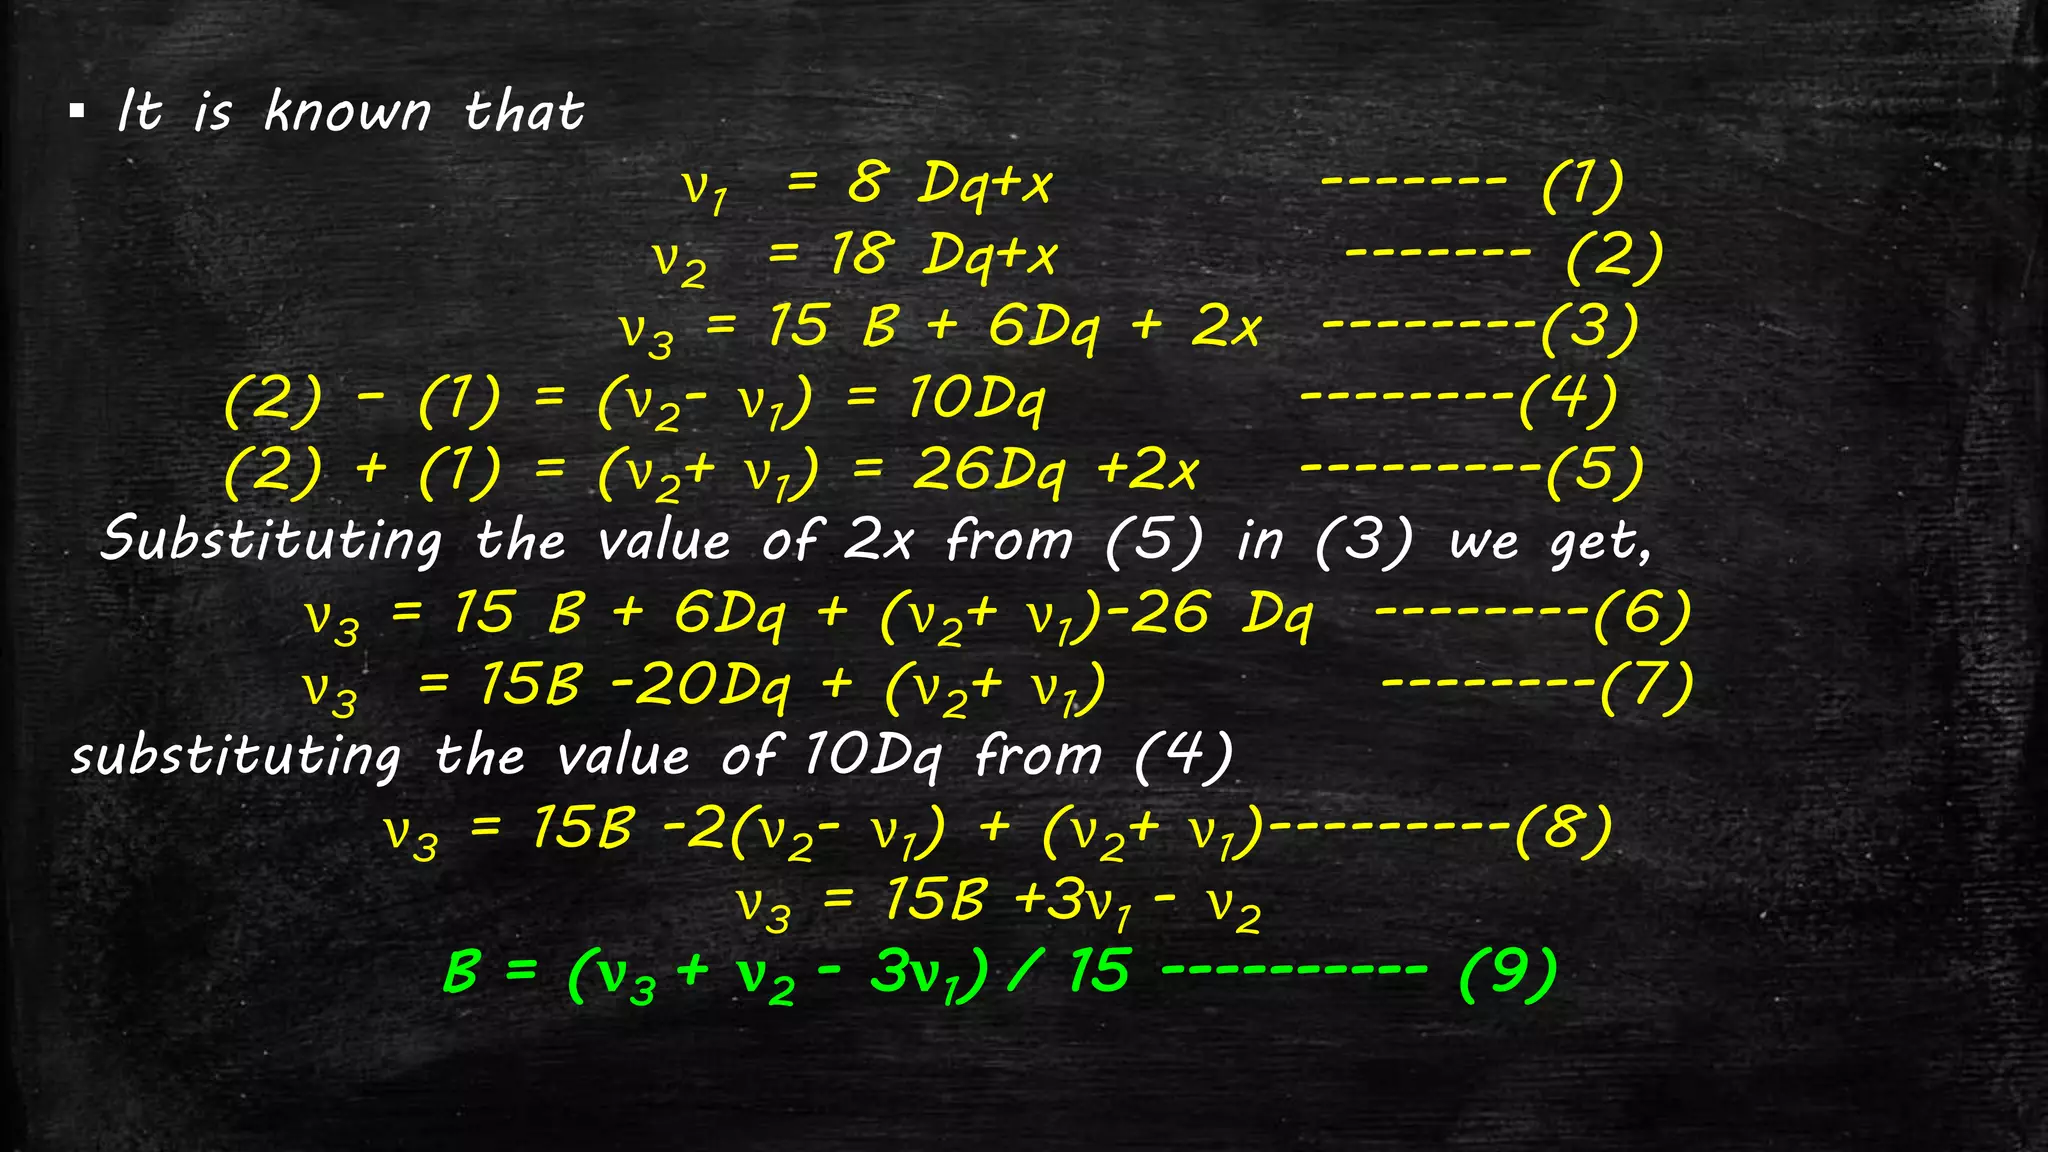 ▪ It is known that
ν₁ = 8 Dq+x ------- (1)
ν₂ = 18 Dq+x ------- (2)
ν₃ = 15 B + 6Dq + 2x --------(3)
(2) - (1) = (ν₂- ν₁) = 10Dq --------(4)
(2) + (1) = (ν₂+ ν₁) = 26Dq +2x ---------(5)
Substituting the value of 2x from (5) in (3) we get,
ν₃ = 15 B + 6Dq + (ν₂+ ν₁)-26 Dq --------(6)
ν₃ = 15B -20Dq + (ν₂+ ν₁) --------(7)
substituting the value of 10Dq from (4)
ν₃ = 15B -2(ν₂- ν₁) + (ν₂+ ν₁)---------(8)
ν₃ = 15B +3ν₁ - ν₂
B = (ν₃ + ν₂ - 3ν₁) / 15 ---------- (9)